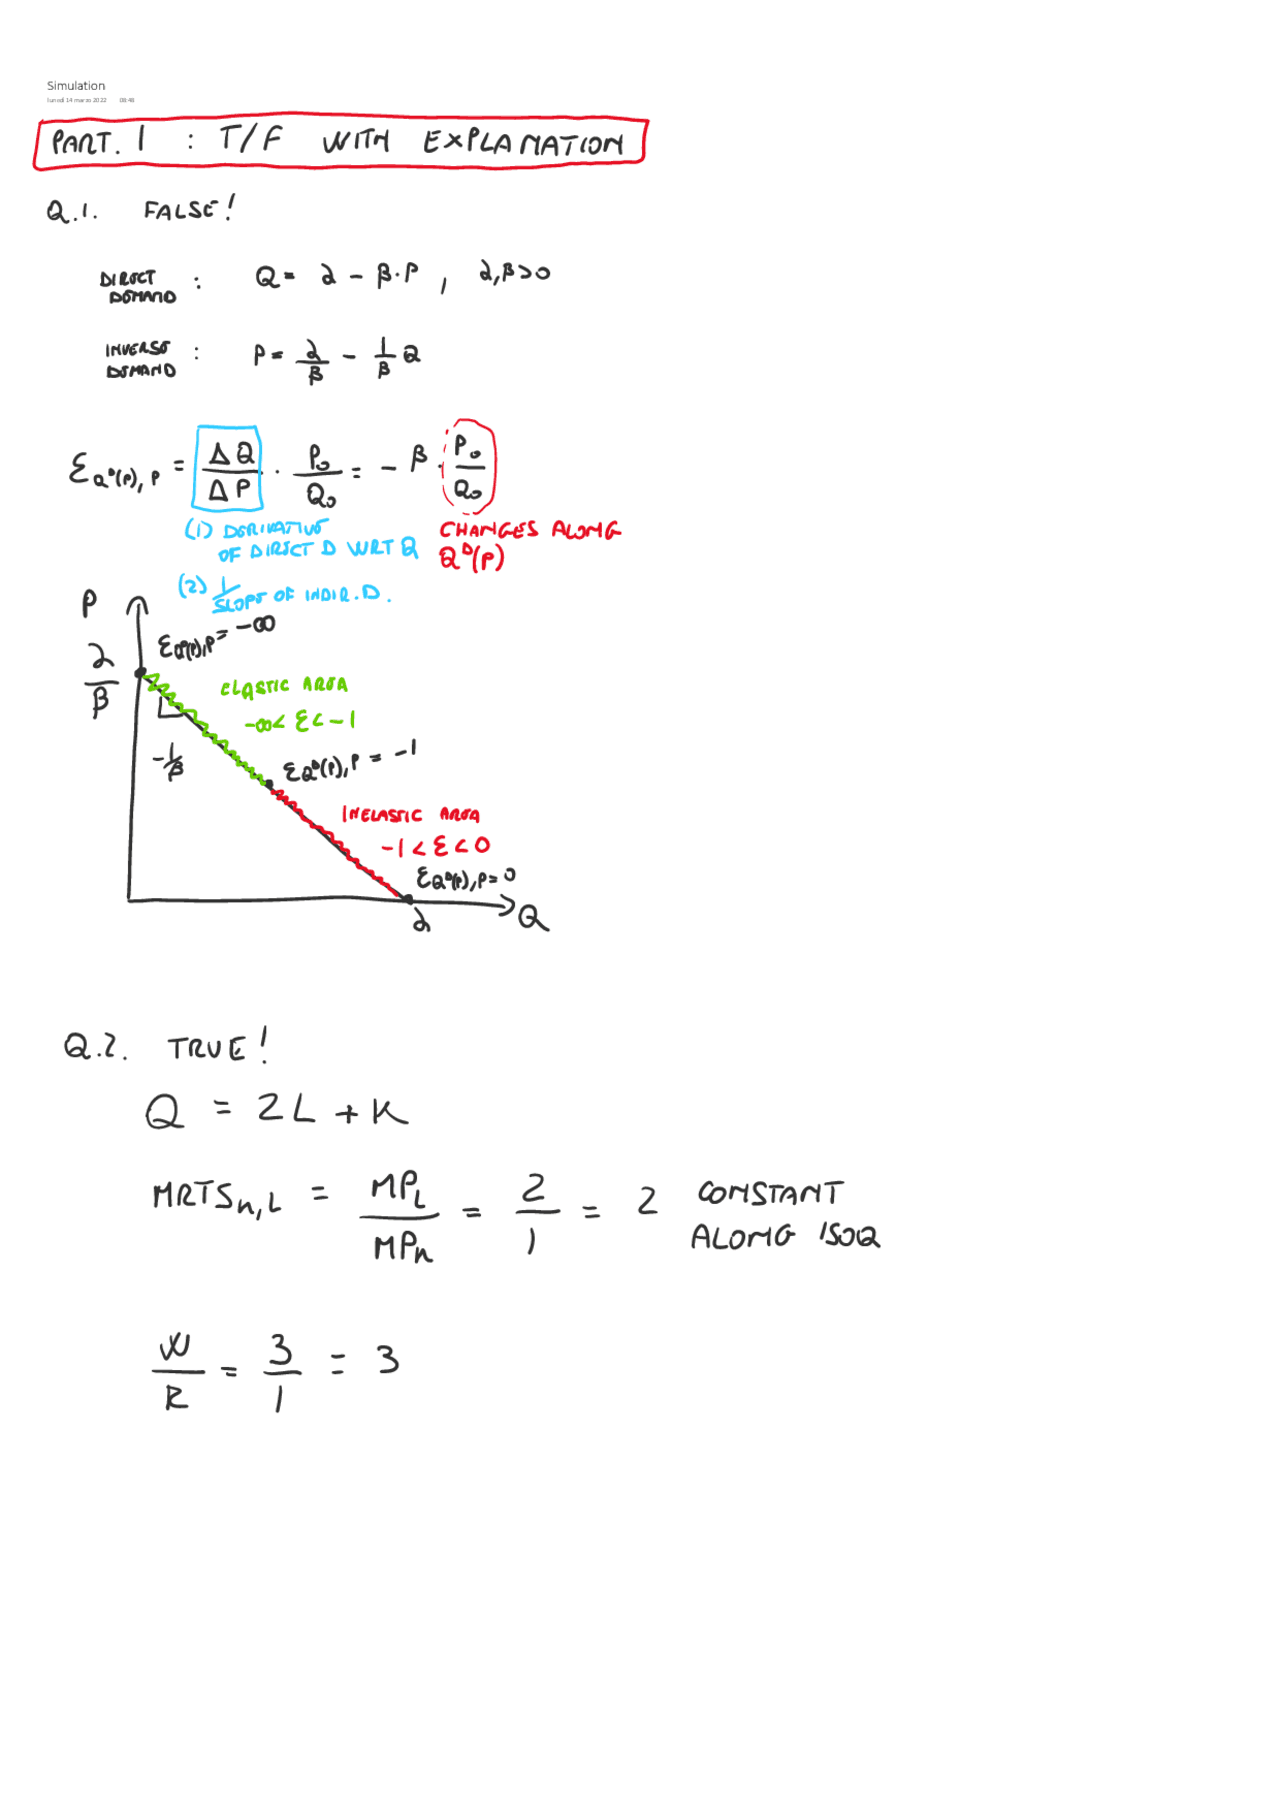 Simulation
lunedì 14 marzo 2022 08:46
PART. 1 : T/F WITH EXPLANATION
Q.1. FALSE!
DIRECT DEMAND : Q = α - β·P , α,β>0
INVERSE DEMAND : P = α/β - 1/β Q
εQᴰ(P),P = ΔQ/ΔP · P₀/Q₀ = - β · P₀/Q₀
(1) DERIVATIVE OF DIRECT D WRT Q
CHANGES ALONG Qᴰ(P)
(2) 1/SLOPE OF INDIR.D.
P
εQᴰ(P),P = -∞
α/β
ELASTIC AREA
-∞ < ε < -1
-1/β
εQᴰ(P),P = -1
INELASTIC AREA
-1 < ε < 0
εQᴰ(P),P = 0
α
Q
Q.2. TRUE!
Q = 2L + K
MRTSK,L = MPL/MPK = 2/1 = 2 CONSTANT ALONG ISOQ
W/R = 3/1 = 3